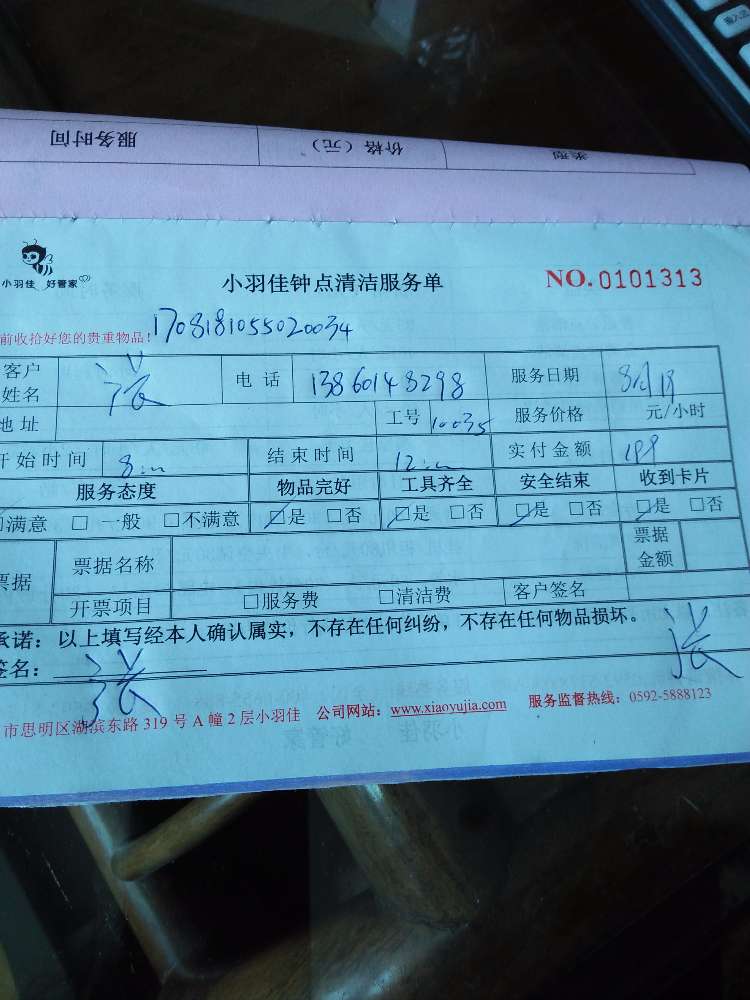 服务时间 价格（元） 类型
小羽佳 好管家
小羽佳钟点清洁服务单 NO.0101313
前收拾好您的贵重物品！1708181055020034
客户姓名 张 电话 13860148298 服务日期 8月18
地址 工号 10035 服务价格 元/小时
开始时间 8:00 结束时间 12:00 实付金额 199
服务态度 物品完好 工具齐全 安全结束 收到卡片
□满意 □一般 □不满意 ☑是 □否 ☑是 □否 ☑是 □否 ☑是 □否
票据 票据名称 票据金额
开票项目 □服务费 □清洁费 客户签名
承诺：以上填写经本人确认属实，不存在任何纠纷，不存在任何物品损坏。
签名： 张 张
市思明区湖滨东路319号A幢2层小羽佳 公司网站：www.xiaoyujia.com 服务监督热线：0592-5888123